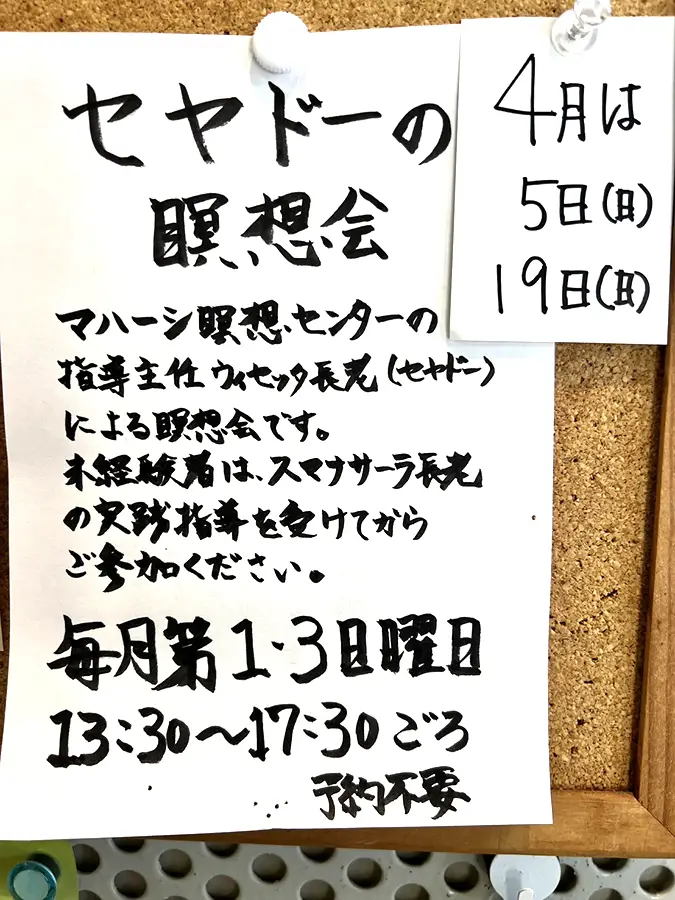 セヤドーの
瞑想会
マハーシ瞑想センターの
指導主任ウィセッタ長老(セヤドー)
による瞑想会です。
未経験者は、スマナサーラ長老
の実践指導を受けてから
ご参加ください。
毎月第1・3日曜日
13:30~17:30ごろ
予約不要
4月は
5日(日)
19日(日)